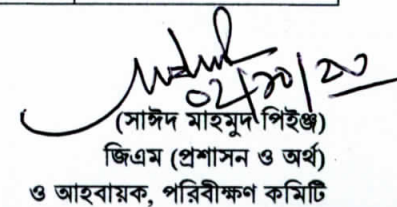 ০২/১০/২০
(সাঈদ মাহমুদ পিইঞ্জ)
জিএম (প্রশাসন ও অর্থ)
ও আহবায়ক, পরিবীক্ষণ কমিটি